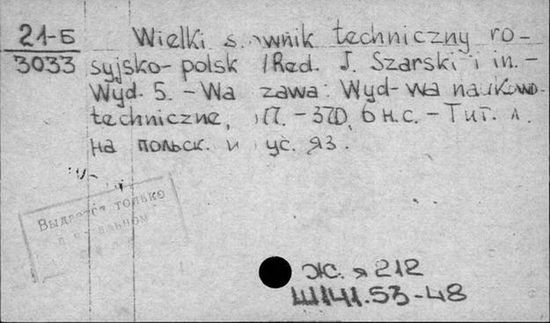 21-Б
3033
Wielki s. wnik techniczny ro-
syjsko-polsk /Red. J. Szarski i in.-
Wyd. 5. - Wa zawa: Wyd-wa naukowo-
techniczne, 6 н.с. - Тит. л.
на польск. и ус. яз.
Выдается только
Ж. я 212
Ш141.53-48